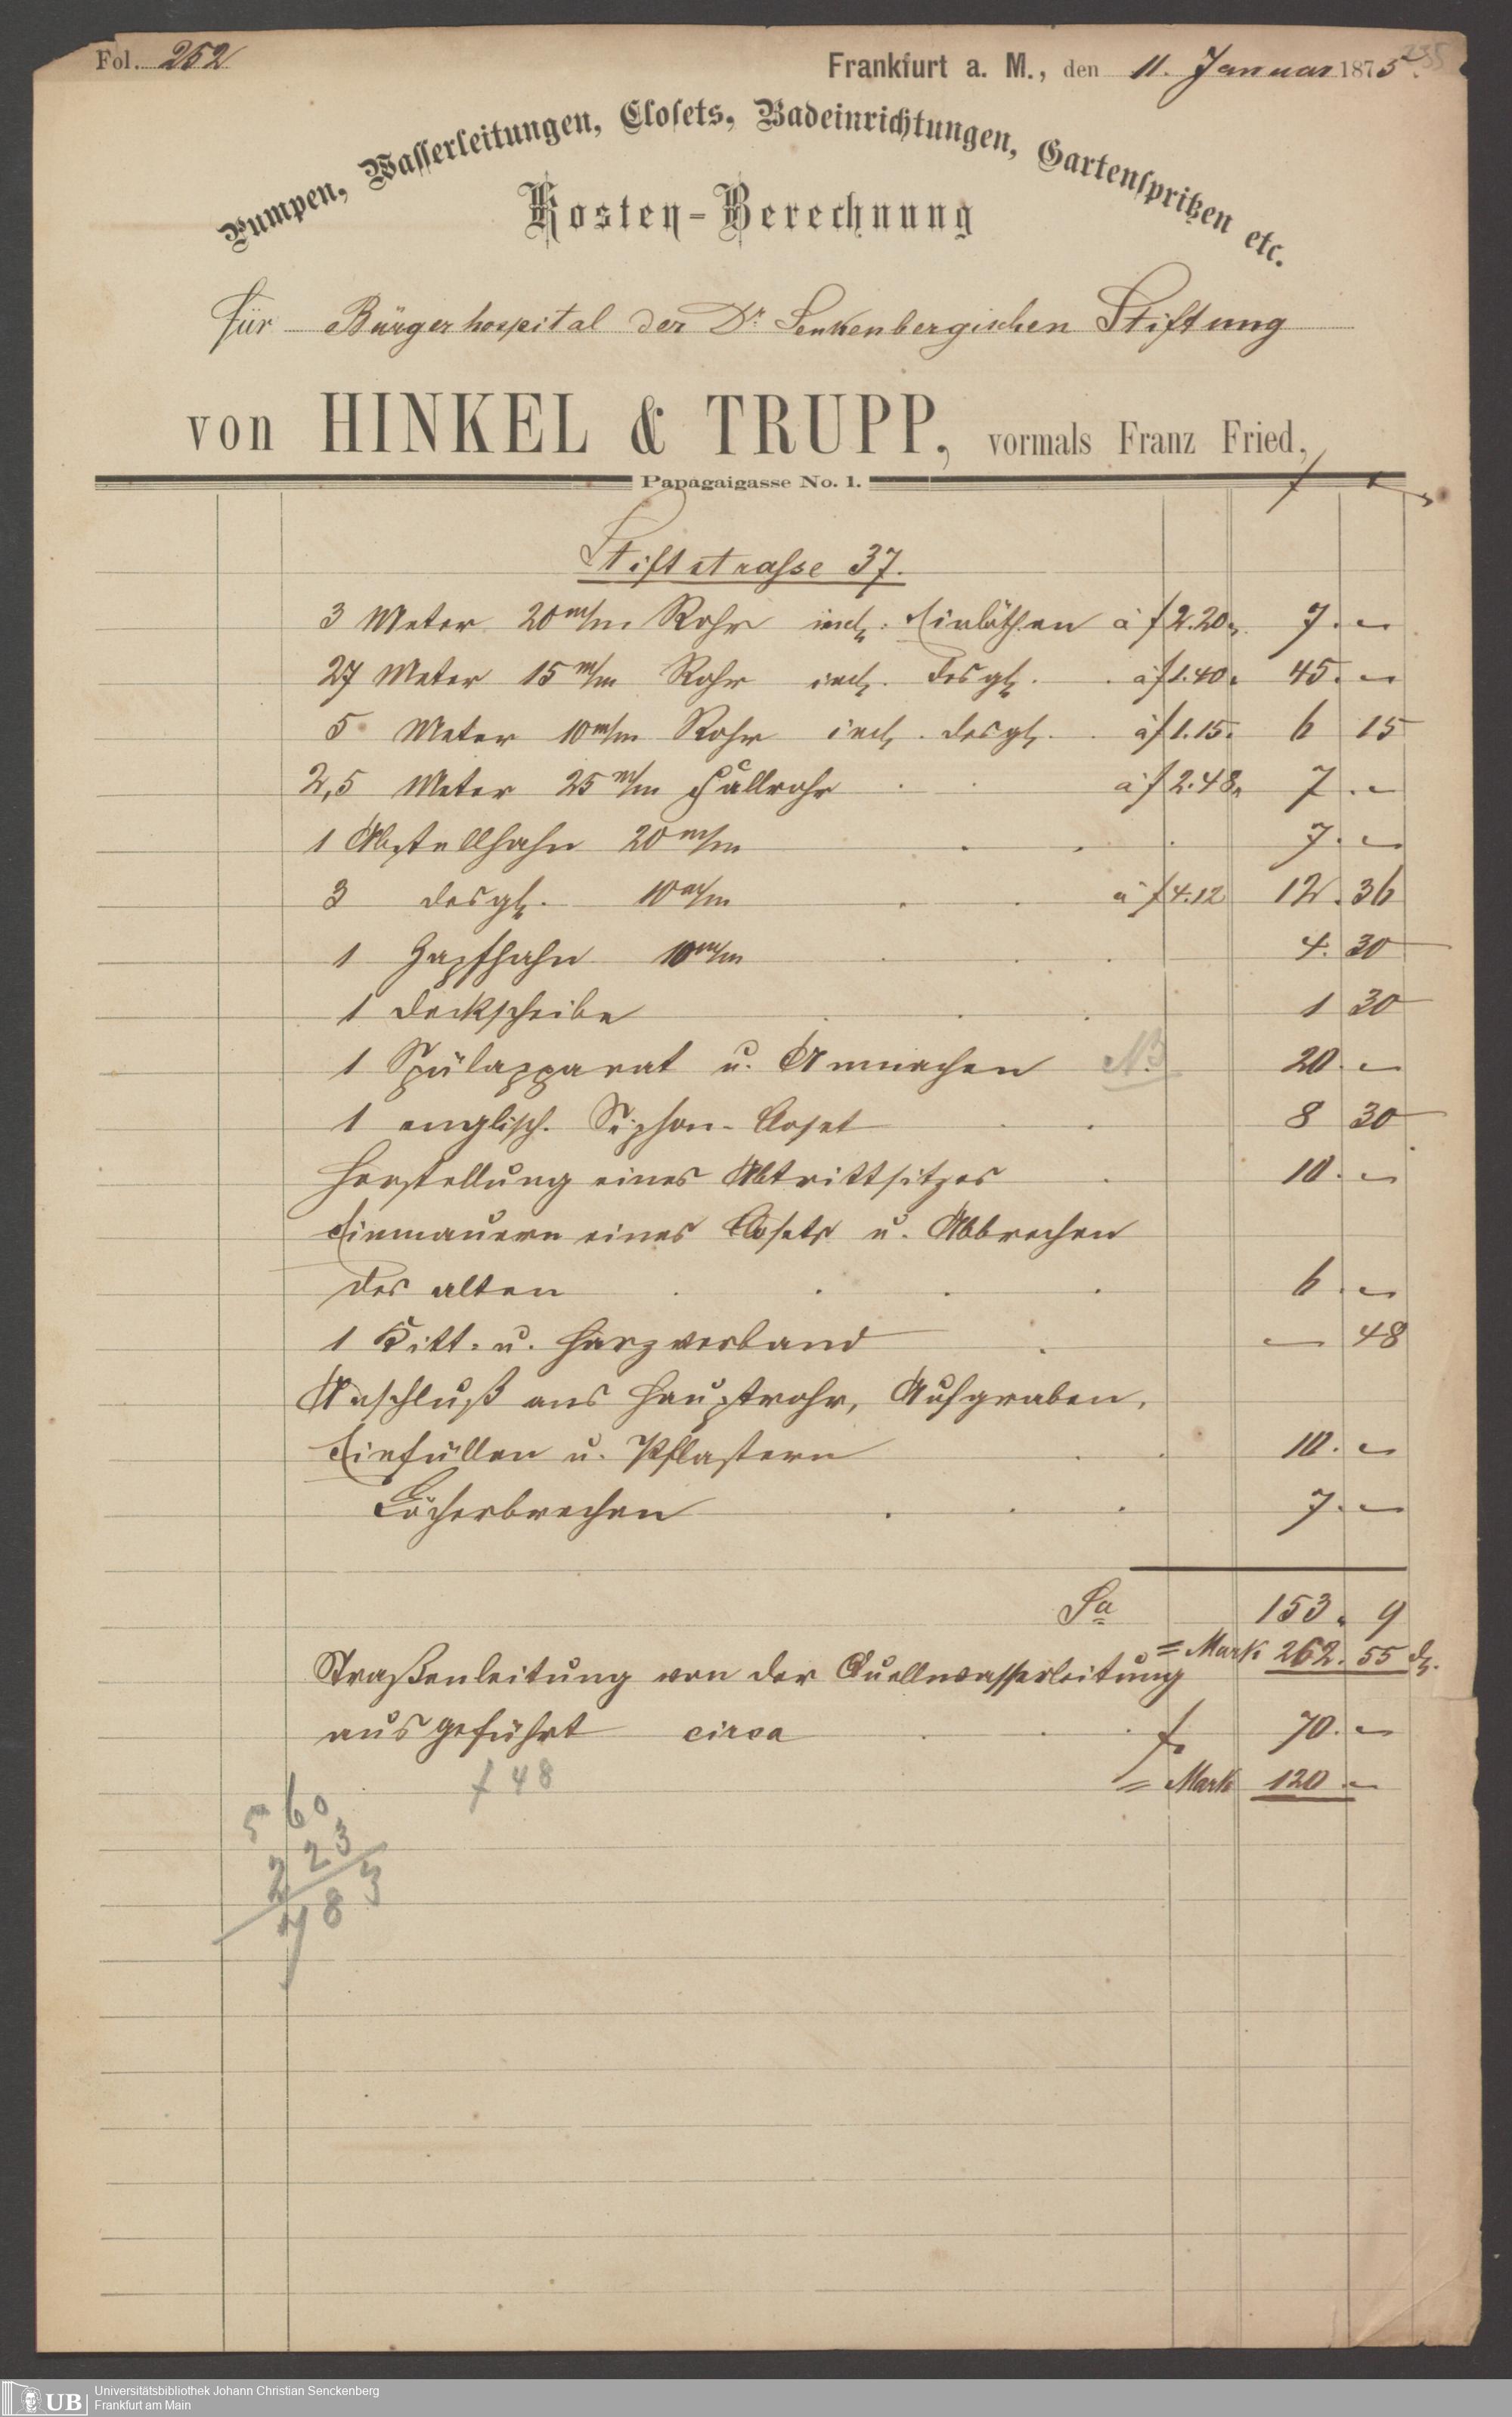 Fol. 252
Frankfurt a. M., den 11. Januar 1875.
235
Pumpen, Wasserleitungen, Closets, Badeinrichtungen, Gartenspritzen etc.
Kosten-Berechnung
für Bürgerhospital der Dr. Senkenbergischen Stiftung
von HINKEL & TRUPP, vormals Franz Fried,
Papagaigasse No. 1.
f x
Stiftstrasse 37.
3 Meter 20 m/m Rohr incl. Einlöthen à f 2.20 7. —
27 Meter 15 m/m Rohr incl. desgl. à f 1.40. 45. —
5 Meter 10 m/m Rohr incl. desgl. à f 1.15. 6 15
2,5 Meter 25 m/m Fallrohr à f 2.48 7. —
1 Abstellhahn 20 m/m 7. —
3 desgl. 10 m/m à f 4.12 12. 36
1 Zapfhahn 10 m/m 4. 30
1 Deckscheibe 1 30
1 Spülapparat u. Anmachen NB 20. —
1 englisch. Siphon-Closet 8 30
Herstellung eines Abtrittsitzes 10. —
Einmauern eines Closets u. Abbrechen
des alten 6. —
1 Kitt- u. Harzverband — 48
Anschluß ans Hauptrohr, Aufgraben,
Einfüllen u. Pflastern 10. —
Löcherbrechen 7. —
Sa 153. 9
= Mark 262. 55 d.
Straßenleitung von der Quellwasserleitung
ausgeführt circa f. 70. —
f 48
= Mark 120 —
5 60
2 23
783
UB
Universitätsbibliothek Johann Christian Senckenberg
Frankfurt am Main